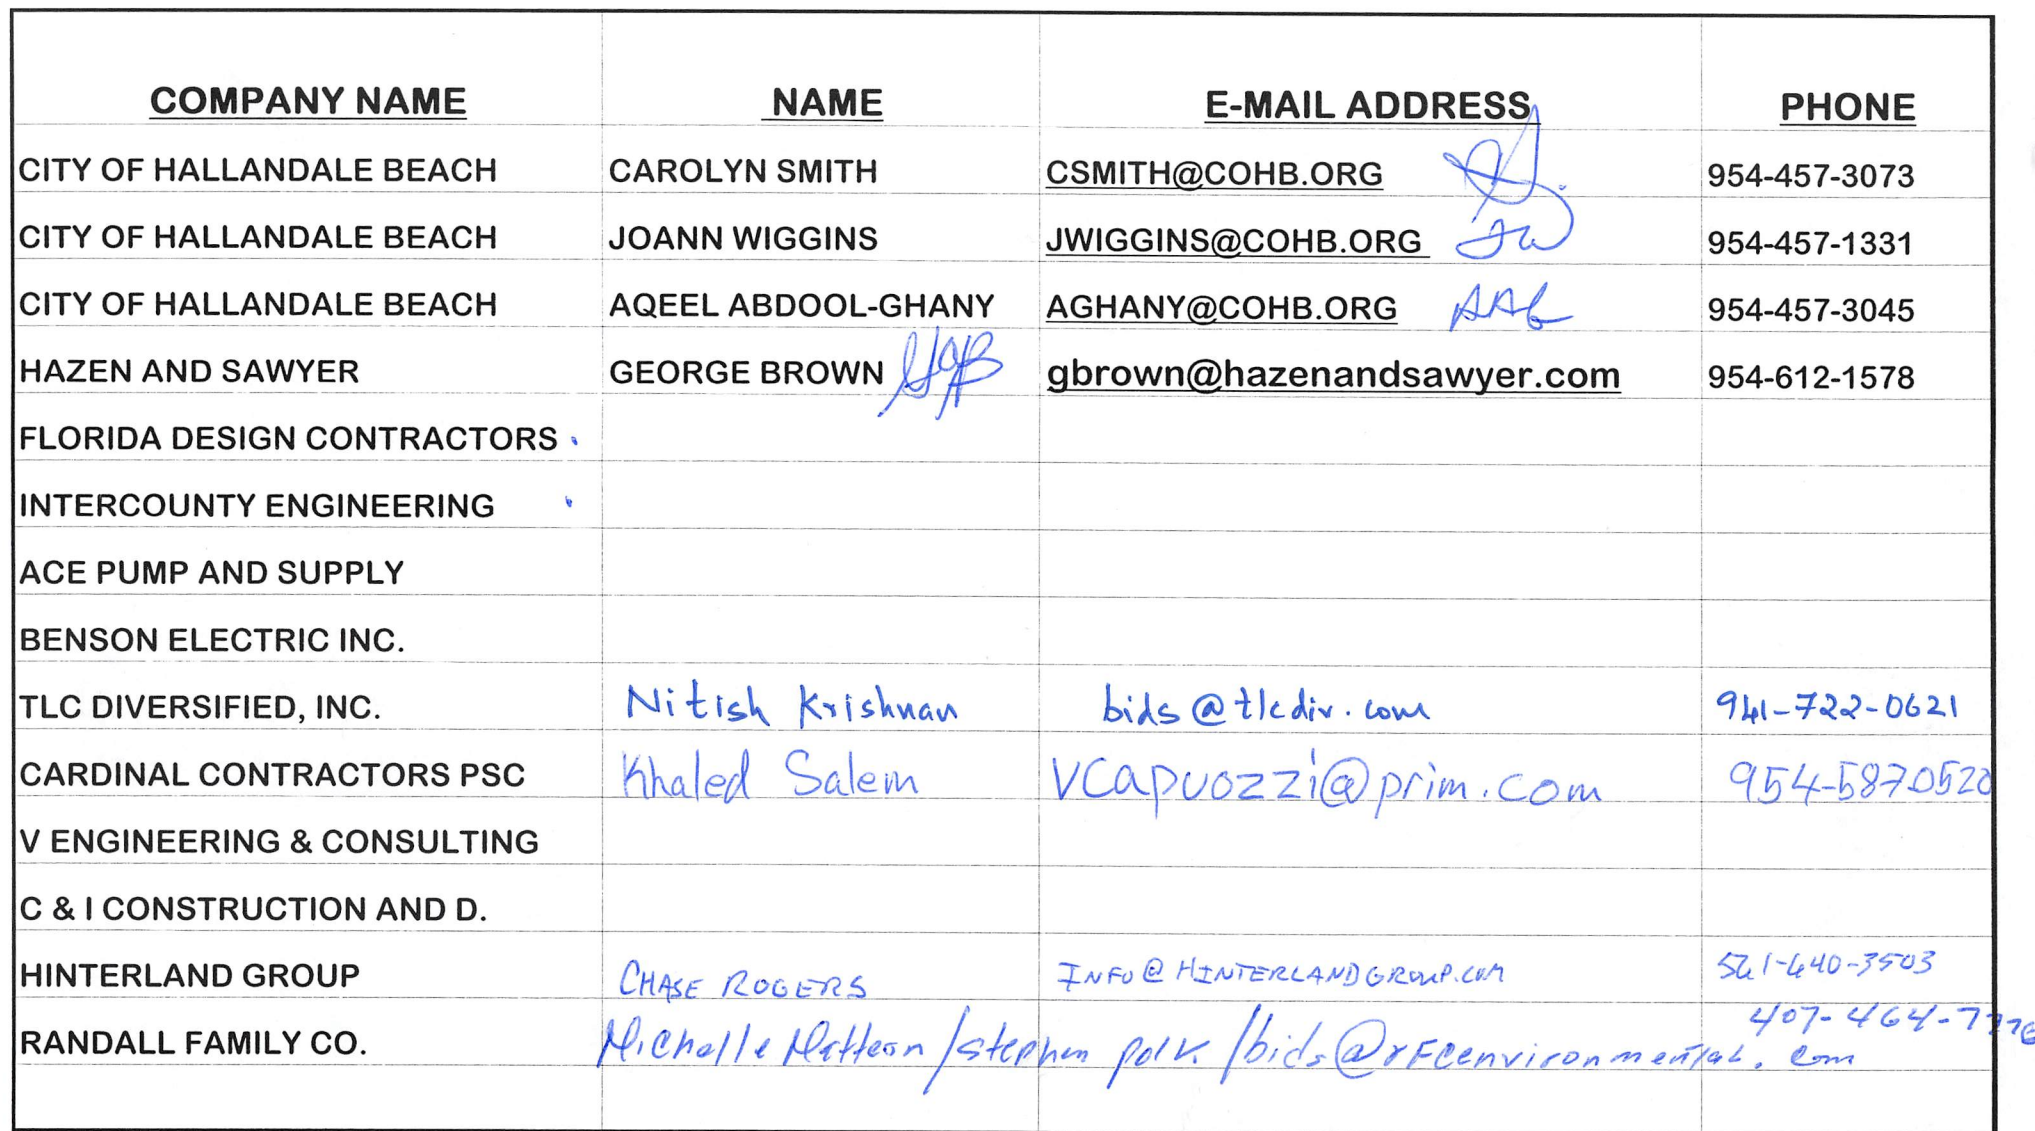 COMPANY NAME NAME E-MAIL ADDRESS PHONE
CITY OF HALLANDALE BEACH CAROLYN SMITH CSMITH@COHB.ORG 954-457-3073
CITY OF HALLANDALE BEACH JOANN WIGGINS JWIGGINS@COHB.ORG JW 954-457-1331
CITY OF HALLANDALE BEACH AQEEL ABDOOL-GHANY AGHANY@COHB.ORG AAG 954-457-3045
HAZEN AND SAWYER GEORGE BROWN gbrown@hazenandsawyer.com 954-612-1578
FLORIDA DESIGN CONTRACTORS
INTERCOUNTY ENGINEERING
ACE PUMP AND SUPPLY
BENSON ELECTRIC INC.
TLC DIVERSIFIED, INC. Nitish Krishnan bids@tlcdiv.com 941-722-0621
CARDINAL CONTRACTORS PSC Khaled Salem VCapuozzi@prim.com 954-5870520
V ENGINEERING & CONSULTING
C & I CONSTRUCTION AND D.
HINTERLAND GROUP CHASE ROGERS INFO@HINTERLANDGROUP.COM 561-640-3503
RANDALL FAMILY CO. Michelle / stephen polk / bids@rFCenvironmental.com